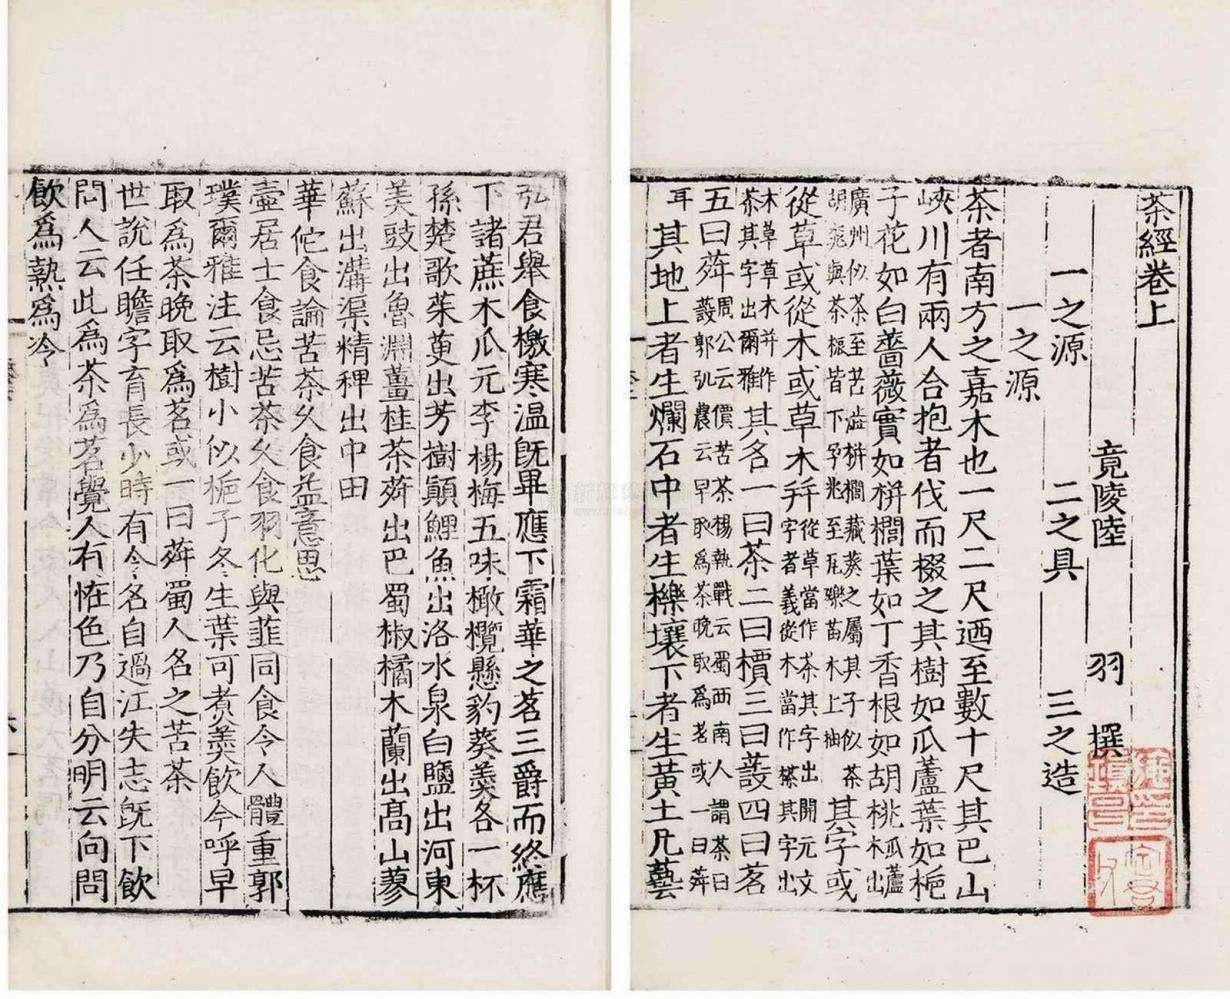 茶經卷上
竟陵陸 羽 撰
一之源 二之具 三之造
一之源
茶者南方之嘉木也一尺二尺廼至數十尺其巴山
峽川有兩人合抱者伐而掇之其樹如瓜蘆葉如梔
子花如白薔薇實如栟櫚葉如丁香根如胡桃瓜蘆木出
廣州似茶至苦澁栟櫚蒲葵之屬其子似茶胡桃與茶根皆下孕兆至瓦礫苗木上抽其字或
從草或從木或草木并從草當作茶其字出開元文字者義從木當作𣘻其字出
木草草木并作茶其字出爾雅其名一曰茶二曰檟三曰蔎四曰茗
五曰荈周公云檟苦茶楊執戟云蜀西南人謂茶曰蔎郭弘農云早取爲茶晚取爲茗或一曰荈
耳其地上者生爛石中者生櫟壤下者生黃土凡藝
弘君舉食檄寒溫既畢應下霜華之茗三爵而終應
下諸蔗木瓜元李楊梅五味橄欖懸豹葵羹各一杯
孫楚歌茱萸出芳樹顛鯉魚出洛水泉白鹽出河東
美豉出魯淵薑桂茶荈出巴蜀椒橘木蘭出高山蓼
蘇出溝渠精稗出中田
華佗食論苦茶久食益意思
壺居士食忌苦茶久食羽化與韮同食令人體重郭
璞爾雅注云樹小似梔子冬生葉可煮羹飲今呼早
取為茶晚取爲茗或一曰荈蜀人名之苦茶
世說任瞻字育長少時有令名自過江失志既下飲
問人云此爲茶爲茗覺人有恠色乃自分明云向問
飲爲熱爲冷